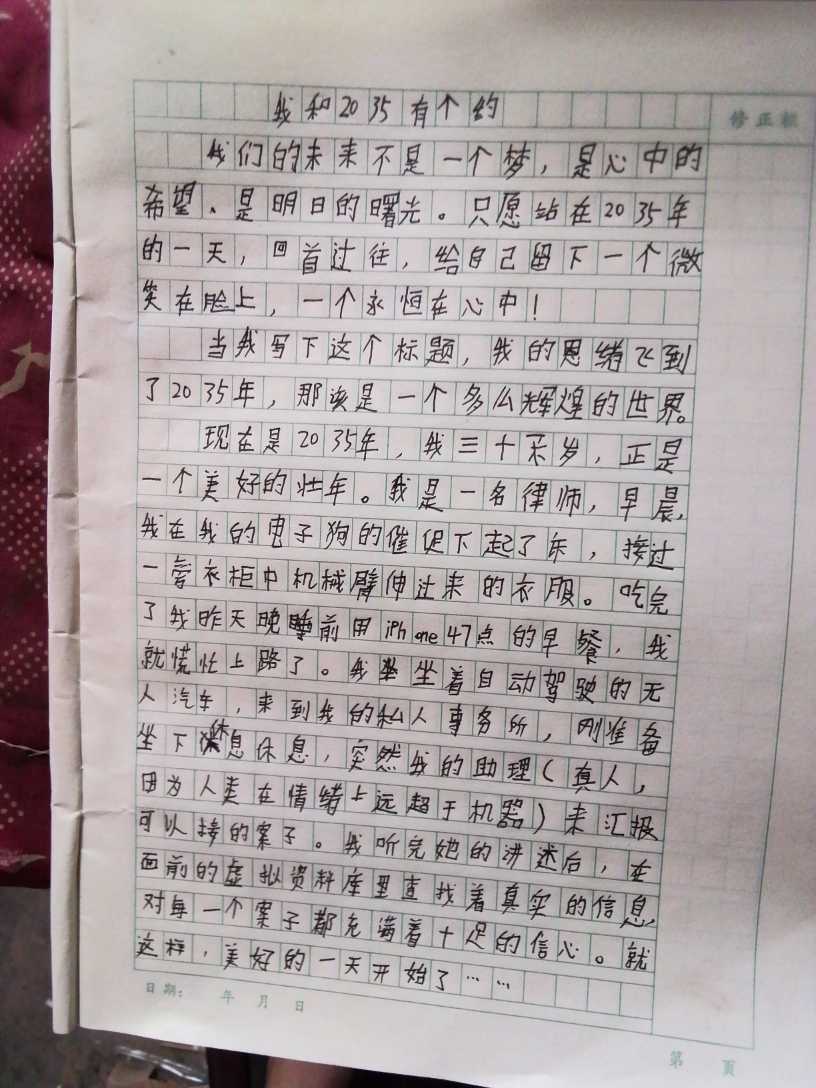 我和2035有个约
修正栏
我们的未来不是一个梦，是心中的
希望、是明日的曙光。只愿站在2035年
的一天，回首过往，给自己留下一个微
笑在脸上，一个永恒在心中！
当我写下这个标题，我的思绪飞到
了2035年，那该是一个多么辉煌的世界。
现在是2035年，我三十来岁，正是
一个美好的壮年。我是一名律师，早晨，
我在我的电子狗的催促下起了床，接过
一旁衣柜中机械臂伸过来的衣服。吃完
了我昨天晚睡前用iPhone47点的早餐，我
就慌忙上路了。我坐着自动驾驶的无
人汽车，来到我的私人事务所，刚准备
坐下休息休息，突然我的助理（真人，
因为人类在情绪上远超于机器）来汇报
可以接的案子。我听完她的讲述后，在
面前的虚拟资料库里查找着真实的信息，
对每一个案子都充满着十足的信心。就
这样，美好的一天开始了……
日期： 年 月 日
第 页